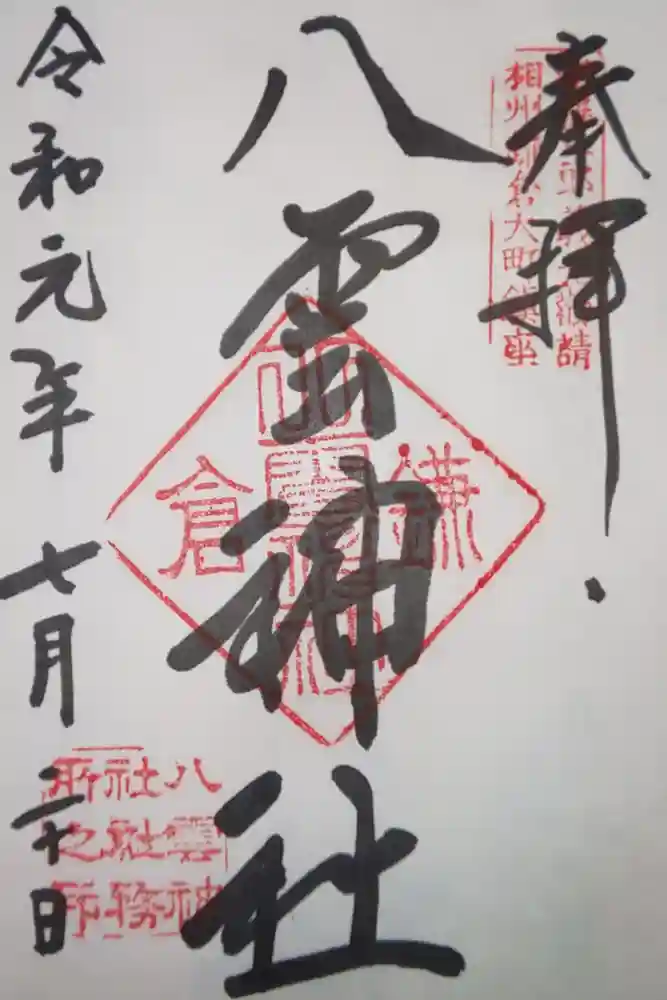 奉拝
相州鎌倉大町鎮座
八雲神社
鎌倉
八雲神社
八雲神
社社務
所之印
令和元年 七月二十日